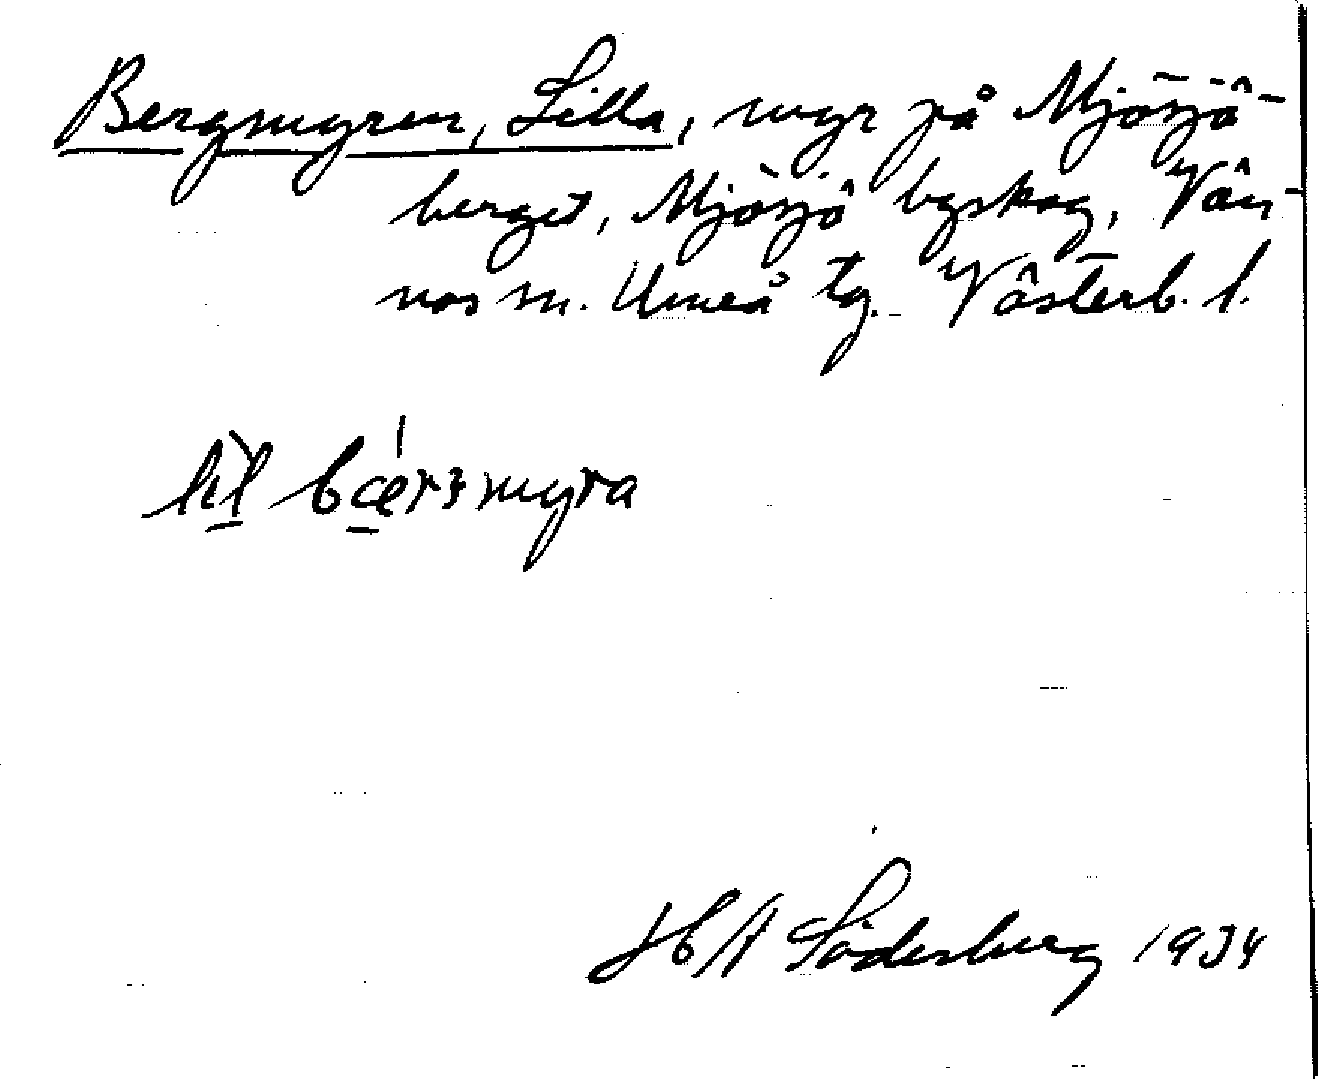 Bergmyren, Lilla, myr på Mjösjö-
berget, Mjösjö byskog, Vän-
näs sn. Umeå tg. Västerb. l.
lìl bǽrʒmyra
H A Söderberg 1934